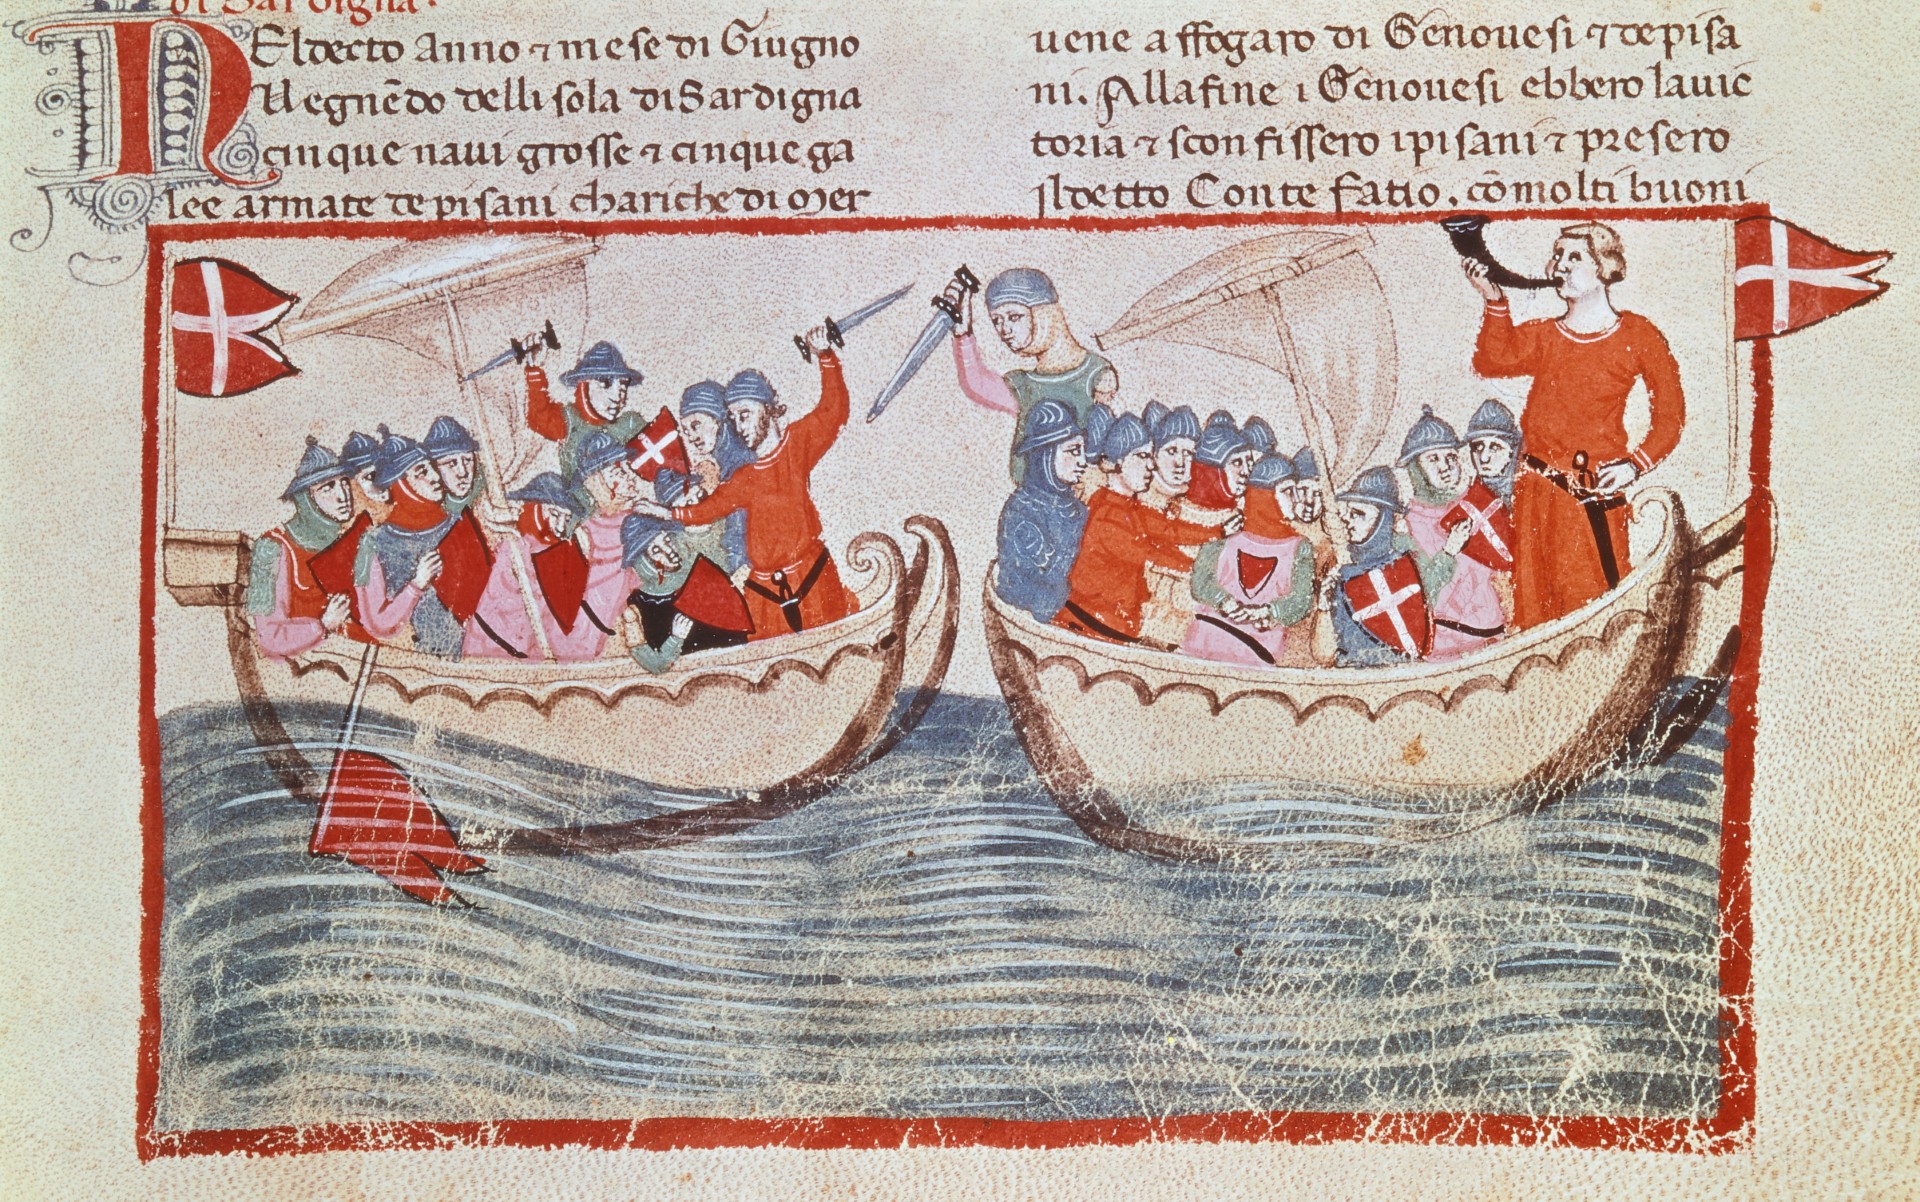 di Sardigna.
NEldecto anno ⁊ mese di Giugno
Vegnēdo dellisola di Sardigna
cinque naui grosse ⁊ cinque ga
lee armate de pisani chariche di mer
uene affogaro di Genouesi ⁊ de pisa
ni. Allafine i Genouesi ebbero lauic
toria ⁊ sconfissero i pisani ⁊ presero
ildetto Conte fatio. cōmolti buoni